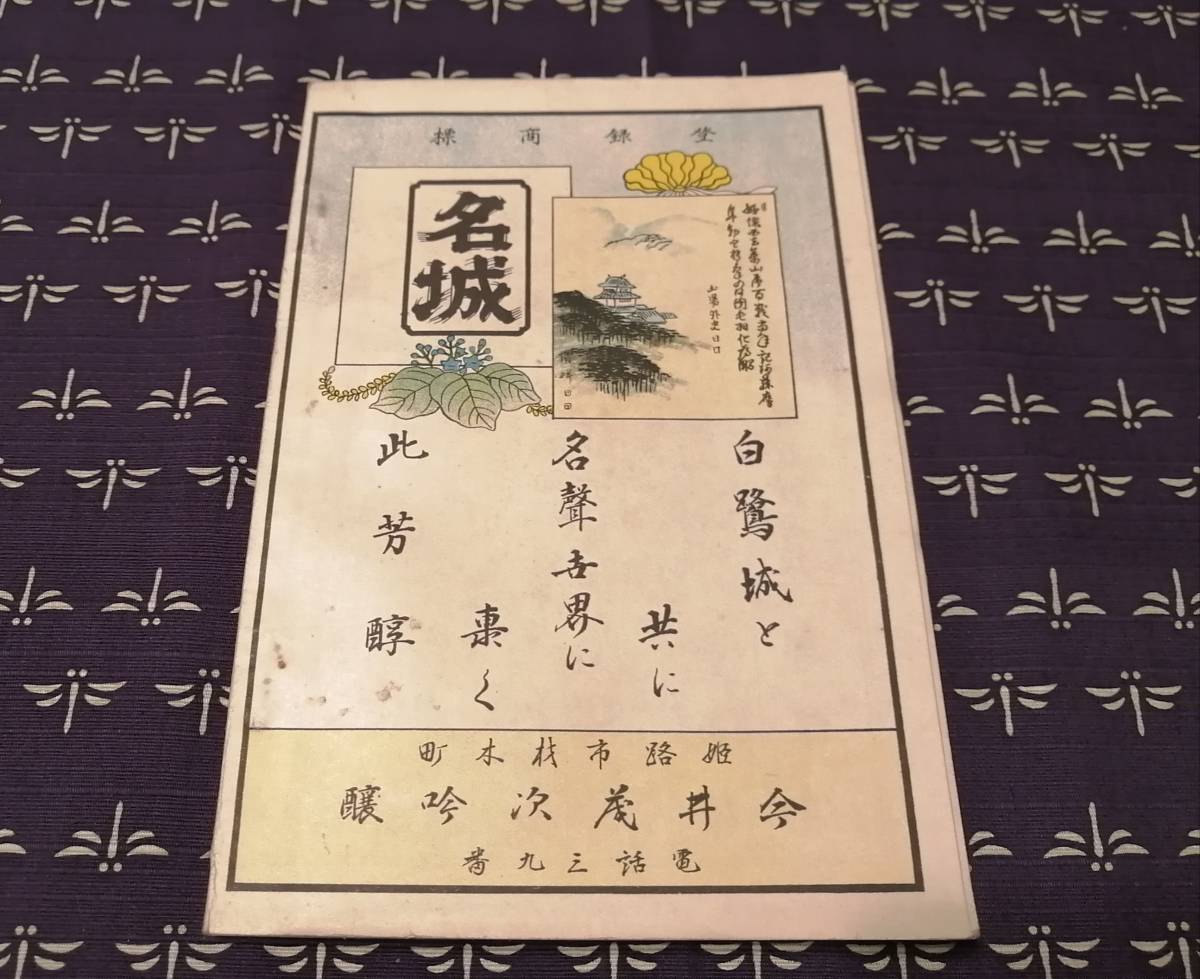 登録商標
名城
山陽外史
白鷺城と
共に
名聲世界に
轟く
此芳醇
姫路市材木町
今井茂次吟釀
電話三九番